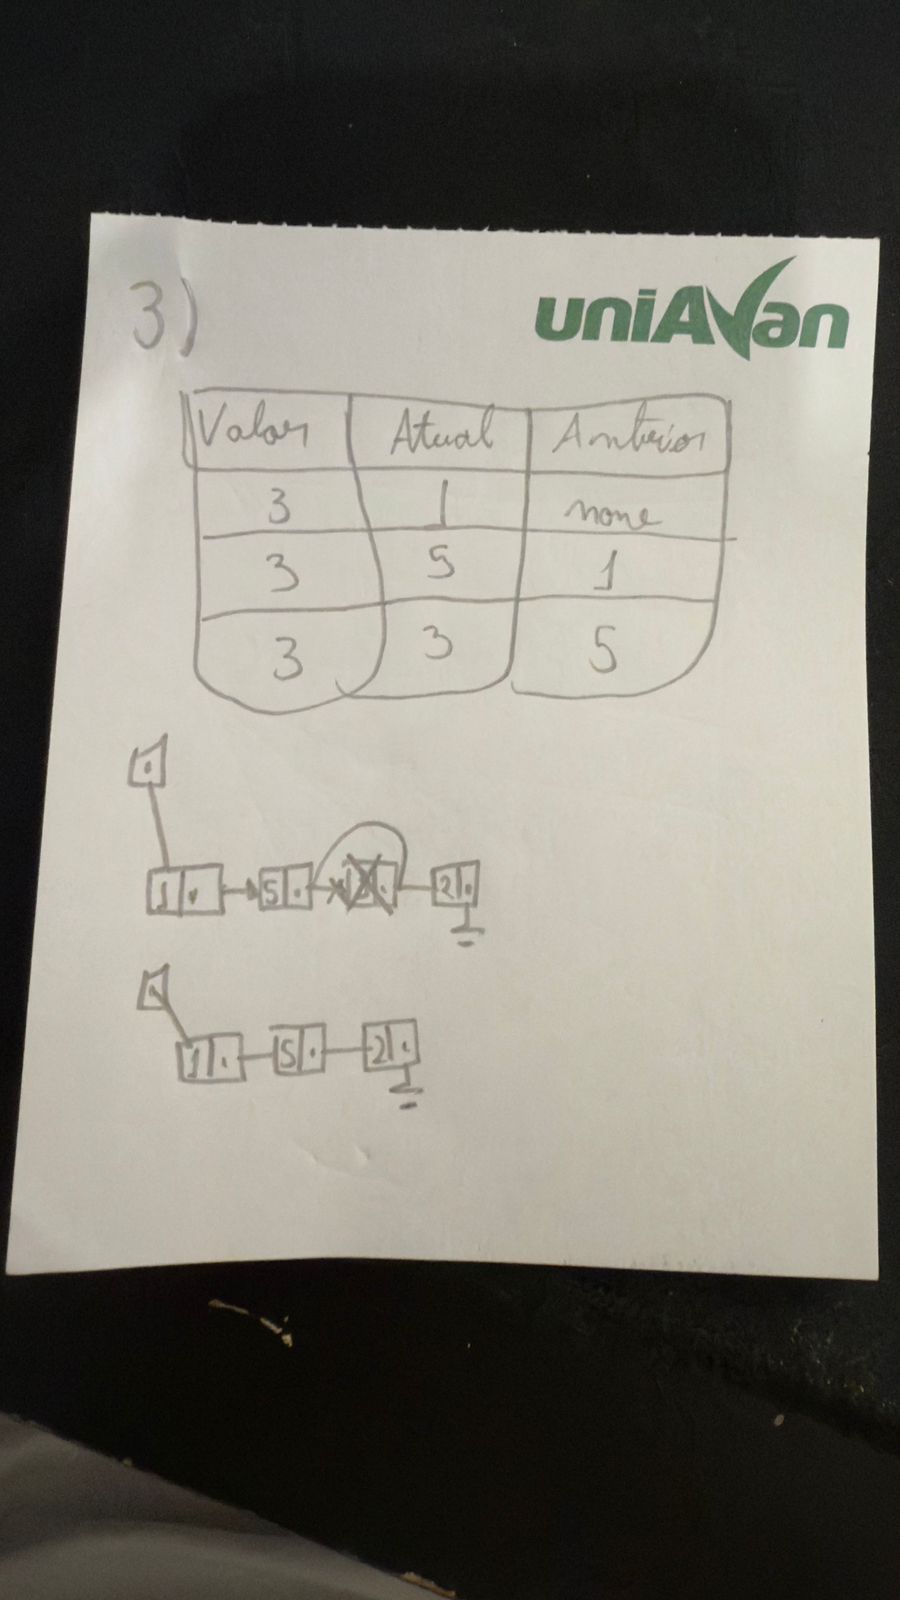 3)
uniAvan
Valor Atual Anterior
3 1 none
3 5 1
3 3 5
1 5 3 2
1 5 2